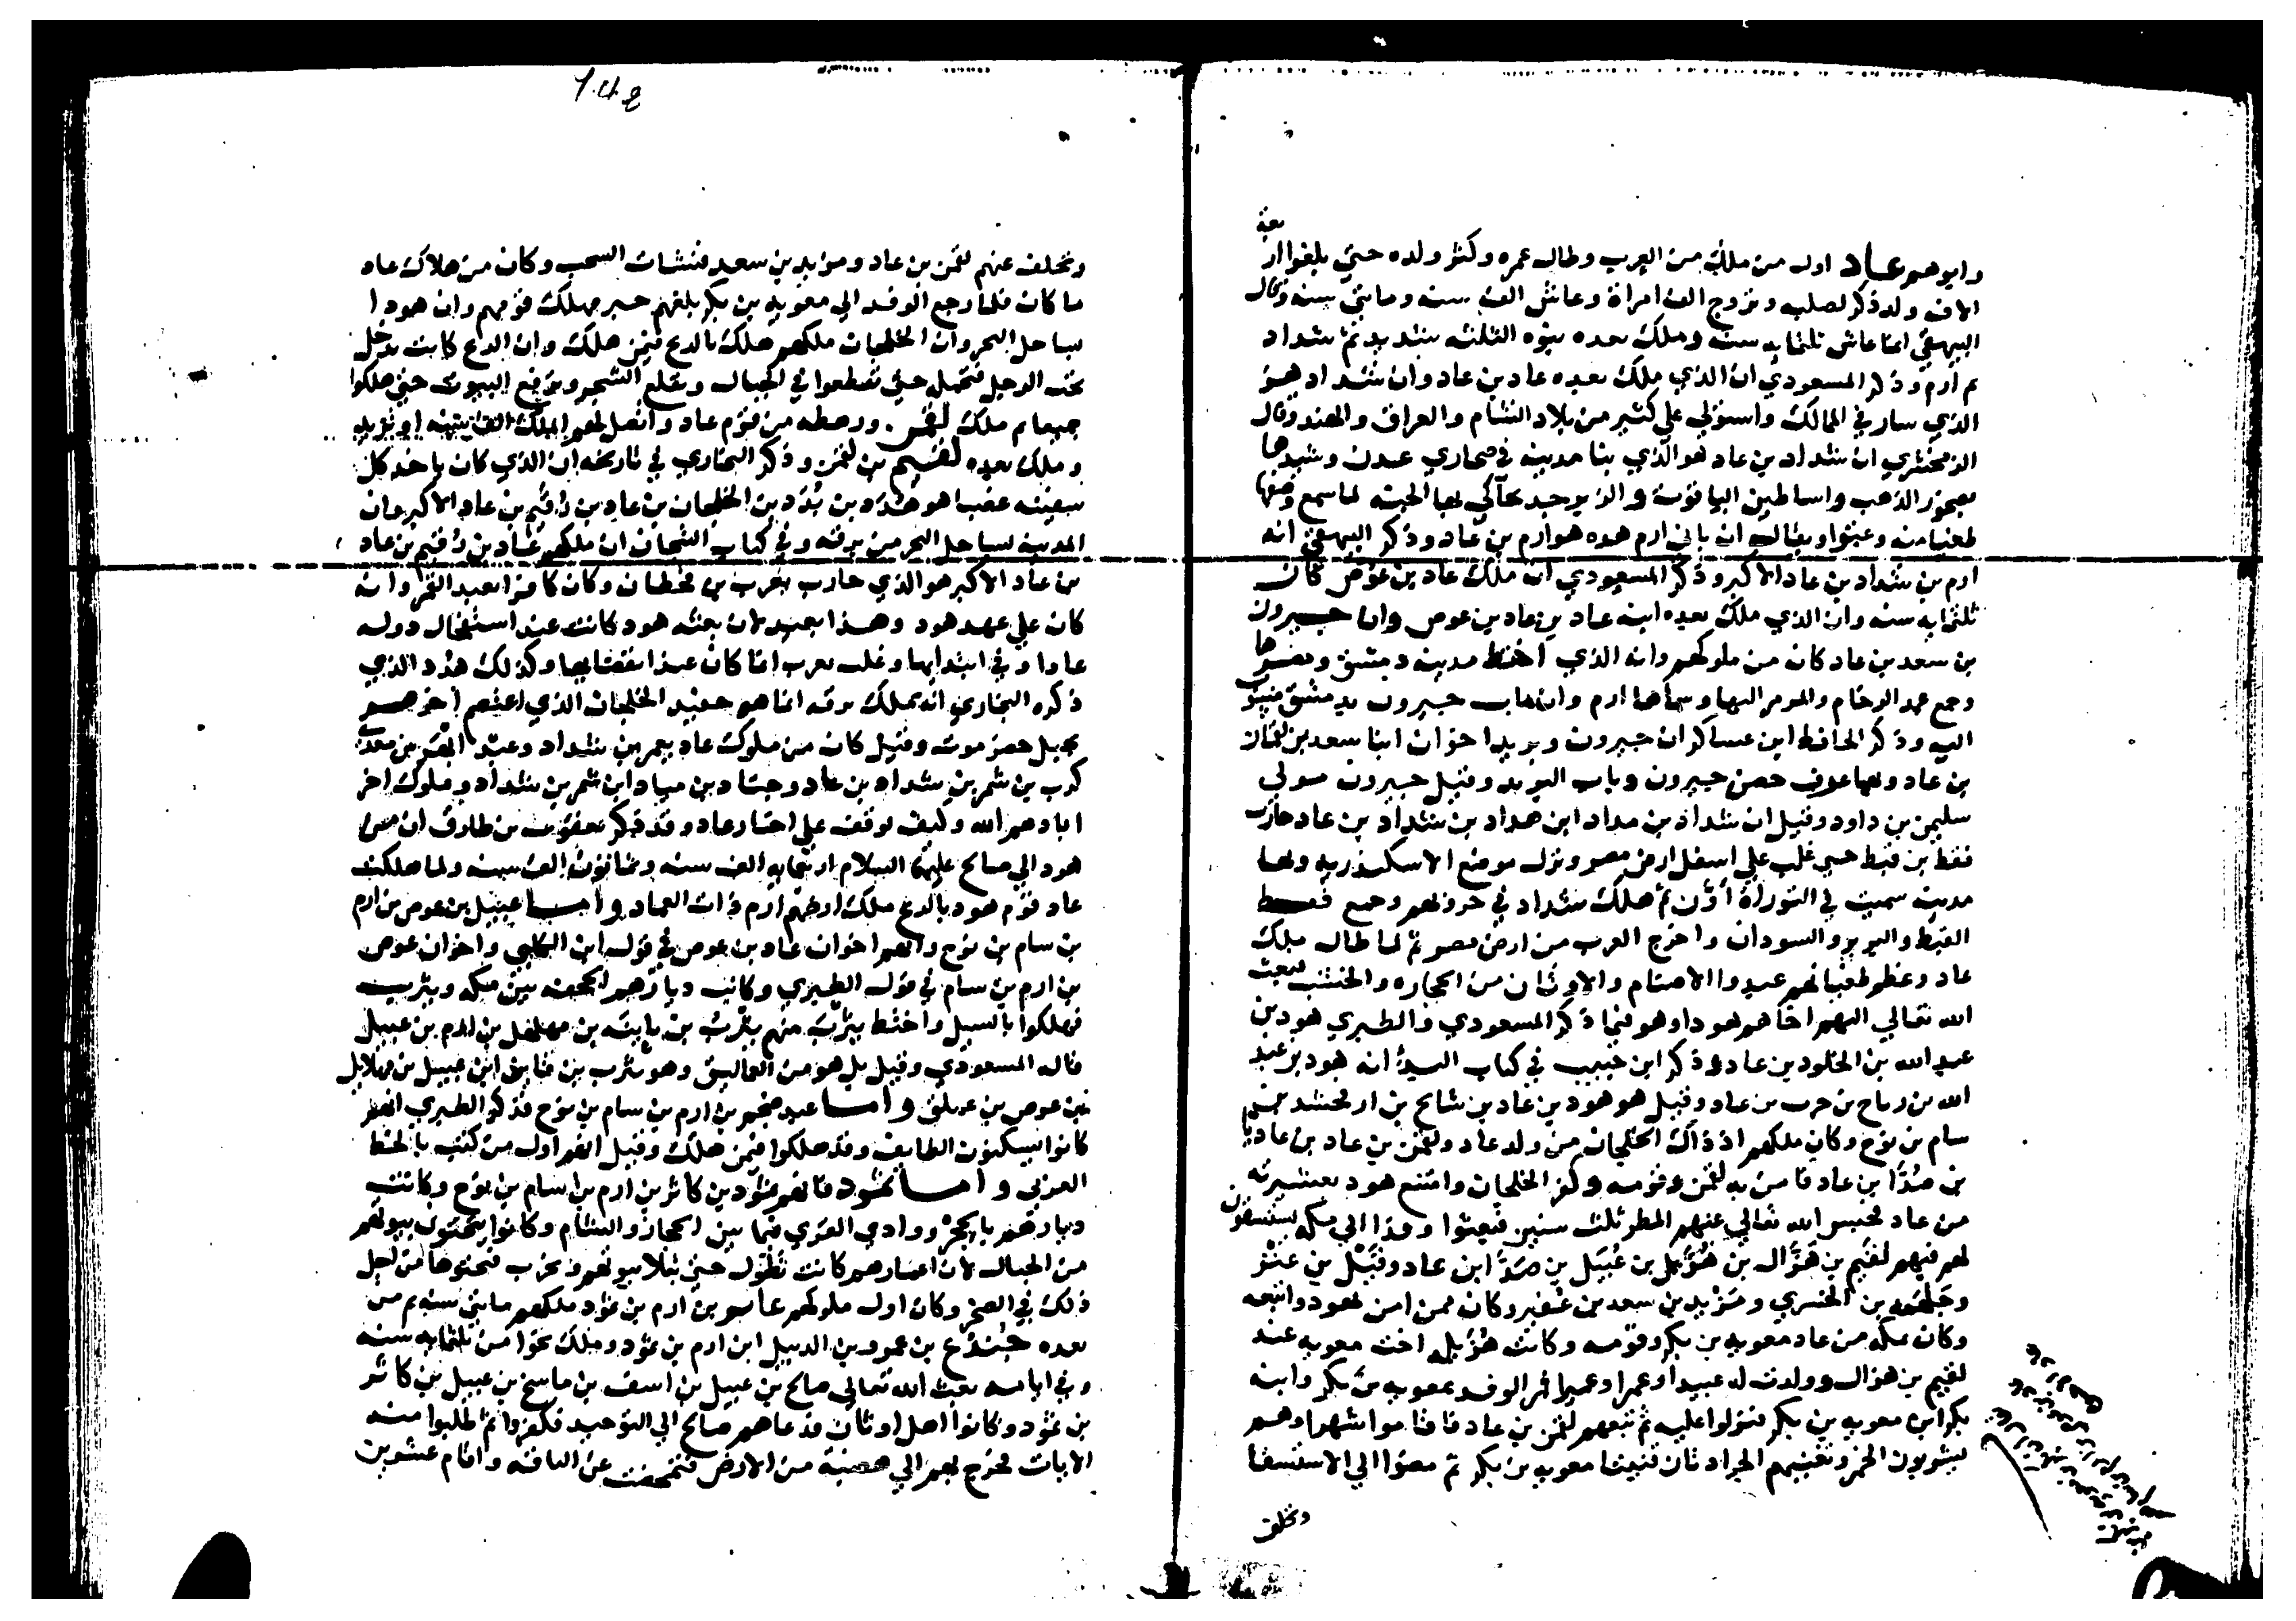 بعة
وابوهم عاد اول من ملك من العرب وطال عمره وكثر ولده حتي بلغوا ار
الاف ولد ذكر لصلبه وتزوج الف امراة وعاش الف سنه ومايتي سنه وقال
البيهقي انما عاش ثلثمايه سنه وملك بعده بنوه الثلثه شديد ثم شداد
ثم ارم وذكر المسعودي ان الذي ملك بعده عاد بن عاد وان شداد هو
الذي سار في الممالك واستولي علي كثير من بلاد الشام والعراق والهند وقال
الزمخشري ان شداد بن عاد هو الذي بنا مدينه في صحاري عدن وشيدها
بصخور الذهب واساطين الياقوت والزبرجد يحاكي بها الجنه لما سمع وصفها
طغيا منه وعتوا ويقال ان باني ارم هذه هو ارم بن عاد وذكر البيهقي انه
ارم بن شداد بن عاد الاكبر وذكر المسعودي ان ملك عاد بن عوص كان
ثلثمايه سنه وان الذي ملك بعده ابنه عاد بن عاد بن عوص وان جيرون
بن سعد بن عاد كان من ملوكهم وانه الذي اختط مدينه دمشق ومصرها
وجمع عمد الرخام والمرمر اليها وسماها ارم وان باب جيرون بدمشق منسوب
اليه وذكر الحافظ ابن عساكر ان جيرون ويزيدا اخوان ابنا سعد بن لقمان
بن عاد وبهما عرف حصن جيرون وباب البريد وقيل جيرون مولي
سليمن بن داود وقيل ان شداد بن مداد ابن هداد بن شداد بن عاد حارب
قفط بن قبط حتي غلب علي اسفل ارض مصر ونزل موضع الاسكندريه وبها
مدينه سميت في التوراة اون ثم هلك شداد في حروبهم وجمع قفط
القبط والبربر والسودان واخرج العرب من ارض مصر ثم لما طال ملك
عاد وعظم طغيانهم عبدوا الاصنام والاوثان من الحجاره والخشب فبعث
الله تعالي اليهم اخاهم هودا وهو فيما ذكر المسعودي والطبري هود بن
عبد الله بن الخلود بن عاد وذكر ابن حبيب في كتاب البدء انه هود بن عبد
الله بن رباح بن حرب بن عاد وقيل هو هود بن عاد بن شالح بن ارفخشد بن
سام بن نوح وكان ملكهم اذ ذاك الخلجان من ولد عاد ولقمن بن عاد بن عاديا
بن صدا ابن عاد فامن به لقمن وقومه وكفر الخلجان وامتنع هود بعشيرته
من عاد فحبس الله تعالي عنهم المطر ثلث سنين فبعثوا وفدا الي مكه يستسقون
لهم فيهم لقيم بن هزال بن هزيل بن عبيل بن صدا ابن عاد وقيل بن عنز
وجلهمه بن الخيبري ومرثد بن سعد بن عفير وكان ممن امن بهود واتبعه
وكان بمكه من عاد معويه بن بكر وقومه وكانت هزيله اخت معويه عند
لقيم بن هزال وولدت له عبيدا وعمرا وعميرا فمر الوفد بمعويه بن بكر وابنه
بكر ابن معويه بن بكر فنزلوا عليه ثم تبعهم لقمن بن عاد فاقاموا شهرا وهم
يشربون الخمر وتغنيهم الجرادتان قينتا معويه بن بكر ثم مضوا الي الاستسقا
وتخلف
وتخلف عنهم لقمن بن عاد ومرثد بن سعد فنشات السحب وكان من هلاك عاد
ما كان فلما رجع الوفد الي معويه بن بكر بلغهم خبر مهلك قومهم وان هودا
بساحل البحر وان الخلجان ملكهم هلك بالريح فيمن هلك وان الريح كانت تدخل
تحت الرجل فتحمله حتي تقطعوا في الجبال وتقلع الشجر وترفع البيوت حتي هلكوا
جميعا ثم ملك لقمن ورهطه من قوم عاد واتصل لهم الملك الف سنه او يزيد
وملك بعده لقيم بن لقمن وذكر البخاري في تاريخه ان الذي كان ياخذ كل
سفينه غصبا هو هدد بن بدد بن الخلجان بن عاد بن رقيم بن عاد الاكبر وان
المدينه بساحل البحر من برقه وفي كتاب التيجان ان ملكهم عاد بن رقيم بن عاد
بن عاد الاكبر هو الذي حارب يعرب بن قحطان وكان كافرا يعبد القمر وانه
كان علي عهد هود وهذا بعيد لان بعثه هود كانت عند استفحال دوله
عاد او في ابتدايها وغلب يعرب انما كان عند انقضايها وكذلك هدد الذي
ذكره البخاري انه تملك برقه انما هو حفيد الخلجان الذي اعتصم اخرهم
بجبل حضرموت وقيل كان من ملوك عاد يعمر بن شداد وعبد ابهر بن معدي
كرب بن شمر بن شداد بن عاد وحناد بن مياد ابن شمر بن شداد وملوك اخر
ابادهم الله وكيف يوقف علي اخبار عاد وقد ذكر يعقوب بن طارق ان من
هود الي صالح عليهما السلام اربعمايه الف سنه وثمانون الف سنه ولما هلكت
عاد قوم هود بالريح ملك ارضهم ارم ذات العماد واما عبيل بن عوص بن ارم
بن سام بن نوح وانهم اخوان عاد بن عوص في قول ابن الكلبي واخوان عوص
بن ارم بن سام في قول الطبري وكانت ديارهم الجحفه بين مكه ويثرب
فهلكوا بالسيل واختط يثرب منهم يثرب بن بايته بن مهلهل بن ارم بن عبيل
قاله المسعودي وقيل بل هو من العماليق وهو يثرب بن قاين ابن عبيل بن مهلايل
بن عوص بن عملق واما عبد ضخم بن ارم بن سام بن نوح فذكر الطبري انهم
كانوا يسكنون الطايف وقد هلكوا فيمن هلك وقيل انهم اول من كتب بالخط
العربي واما ثمود فانهم ثمود بن كاثر بن ارم بن سام بن نوح وكانت
ديارهم بالحجر ووادي القري فيما بين الحجاز والشام وكانوا ينحتون بيوتهم
من الجبال لان اعمارهم كانت تطول حتي تبلا بيوتهم وتخرب فنحتوها من اجل
ذلك في الصخر وكان اول ملوكهم عابر بن ارم بن ثمود ملكهم مايتي سنه ثم من
بعده جندع بن عمرو بن الدبيل ابن ارم بن ثمود وملك نحوا من ثلثمايه سنه
وفي ايامه بعث الله تعالي صالح بن عبيل بن اسف بن ماسخ بن عبيل بن كاثر
بن ثمود وكانوا اهل اوثان فدعاهم صالح الي التوحيد فكفروا ثم طلبوا منه
الايات فخرج بهم الي هضبة من الارض فتمخضت عن الناقه واقام عشرين